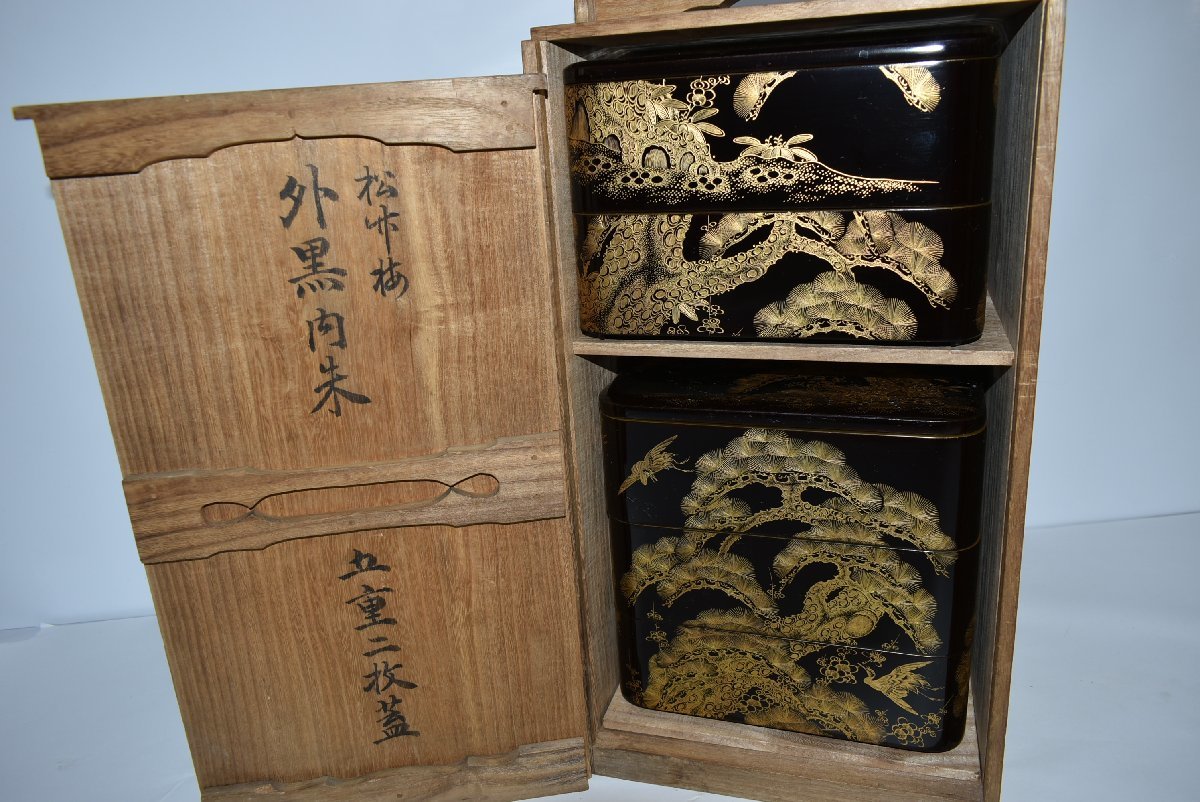 松竹梅
外黒内朱
五重二枚蓋